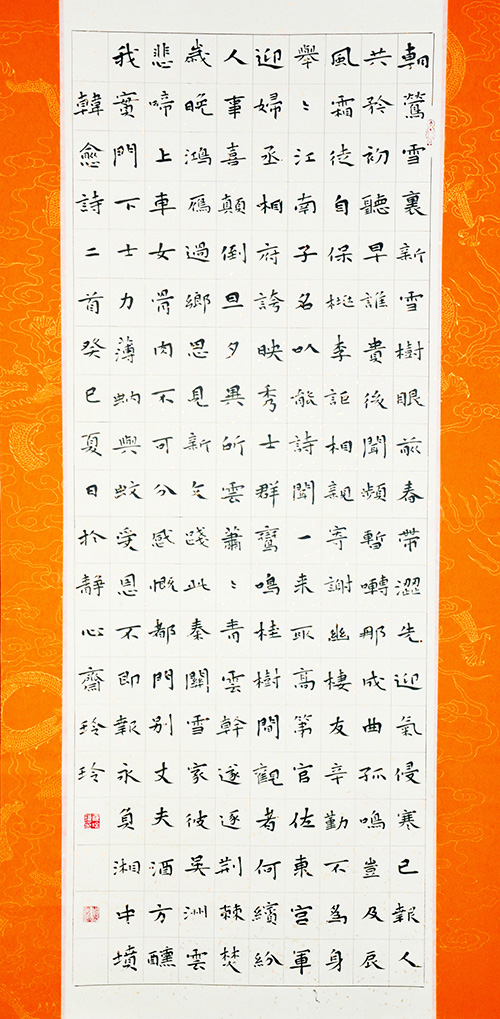 朝鶯雪裏新雪樹眼前春帶澀先迎氣侵寒已報人
共矜初聽早誰貴後聞頻暫囀那成曲孤鳴豈及辰
風霜徒自保桃李詎相親寄謝幽棲友辛勤不為身
舉〻江南子名以能詩聞一来取高第官佐東宮軍
迎婦丞相府誇映秀士群鸞鳴桂樹間觀者何繽紛
人事喜顛倒旦夕異所雲蕭〻青雲幹遂逐荆棘焚
歲晚鴻雁過鄉思見新文踐此秦關雪家彼吳洲雲
悲啼上車女骨肉不可分感慨都門別丈夫酒方醺
我實門下士力薄蚋與蚊受恩不即報永負湘中墳
韓愈詩二首癸巳夏日扵靜心齋玲玲